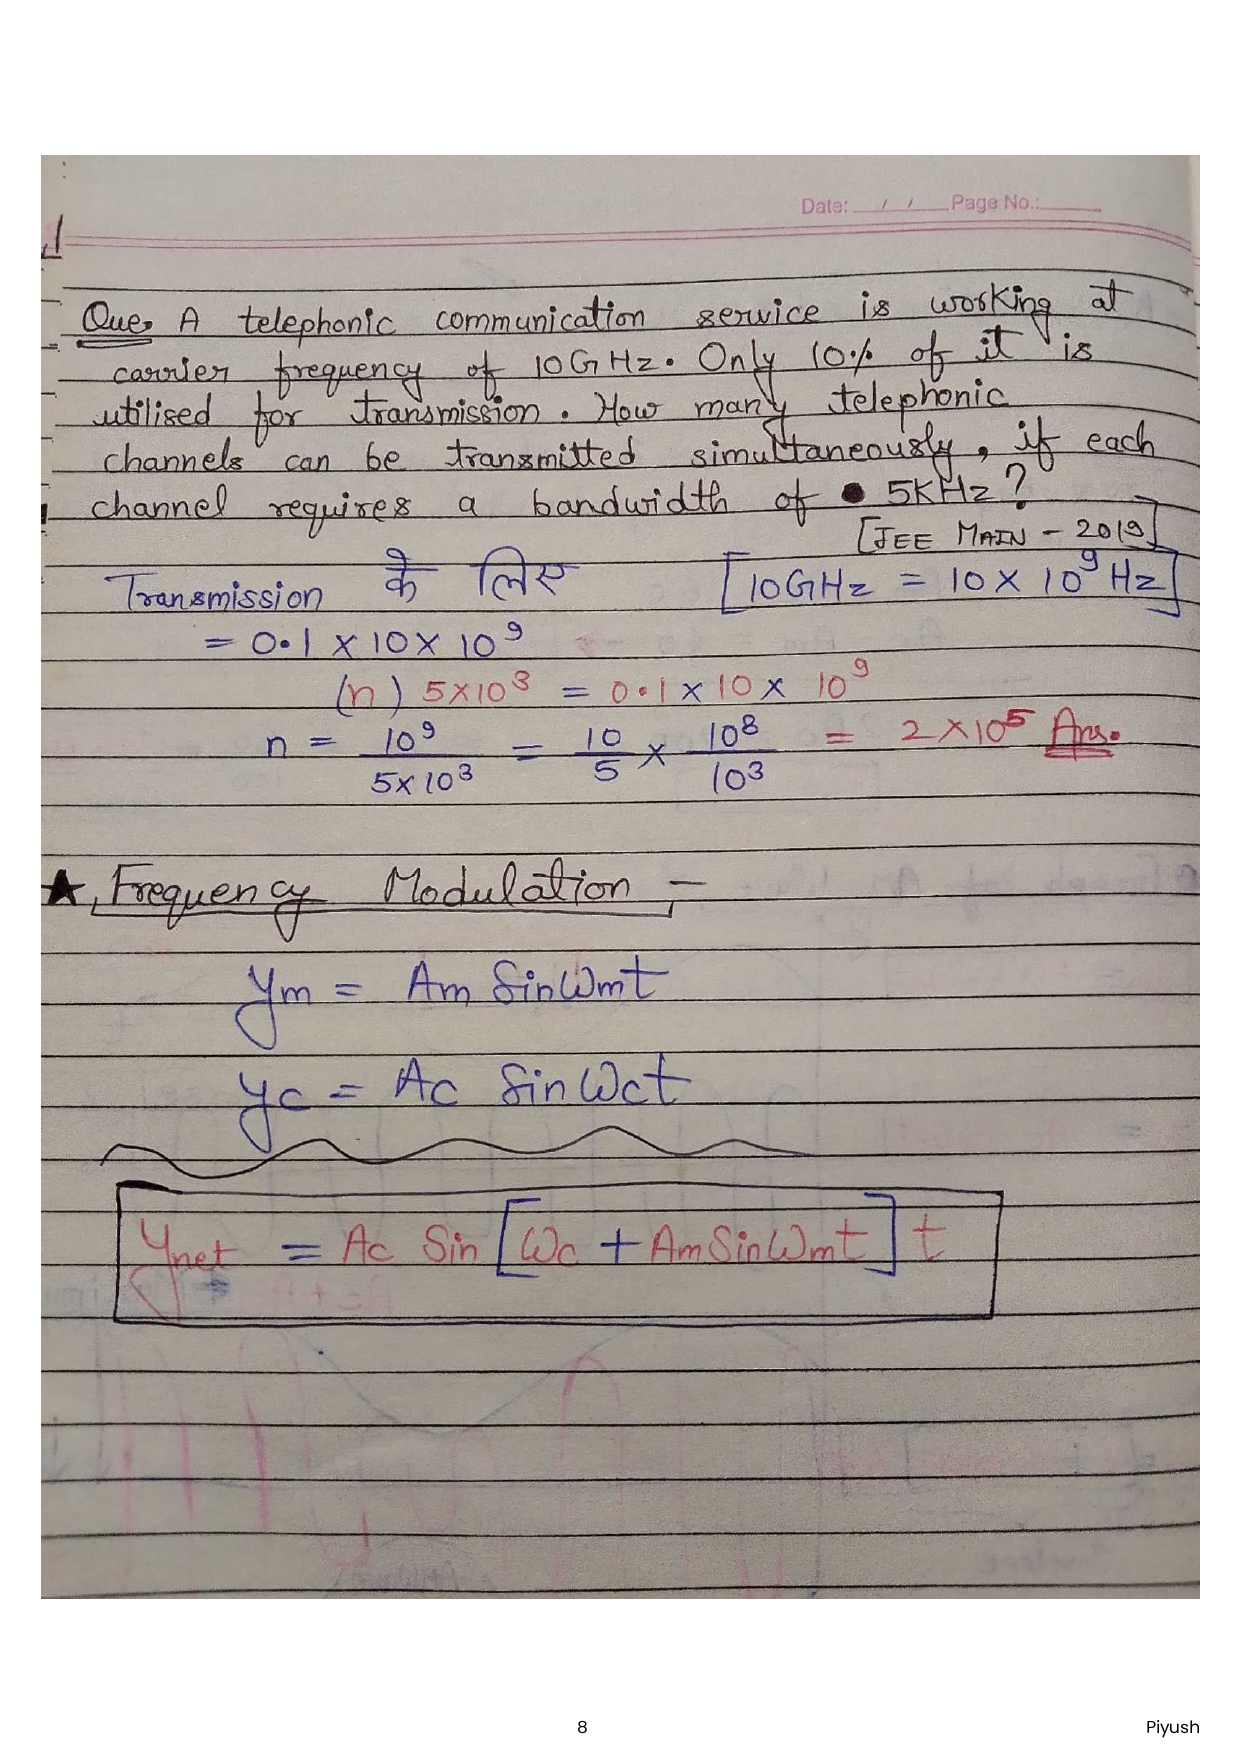 Date: / / Page No.:
Que. A telephonic communication service is working at
carrier frequency of 10GHz. Only 10% of it is
utilised for transmission. How many telephonic
channels can be transmitted simultaneously, if each
channel requires a bandwidth of 5KHz?
[JEE MAIN - 2019]
Transmission के लिए [10GHz = 10 × 10⁹ Hz]
= 0.1 × 10 × 10⁹
(n) 5×10³ = 0.1 × 10 × 10⁹
n = 10⁹/5×10³ = 10/5 × 10⁸/10³ = 2×10⁵ Ans.
★ Frequency Modulation -
ym = Am Sinωmt
yc = Ac Sinωct
ynet = Ac Sin [ωc + AmSinωmt] t
8 Piyush